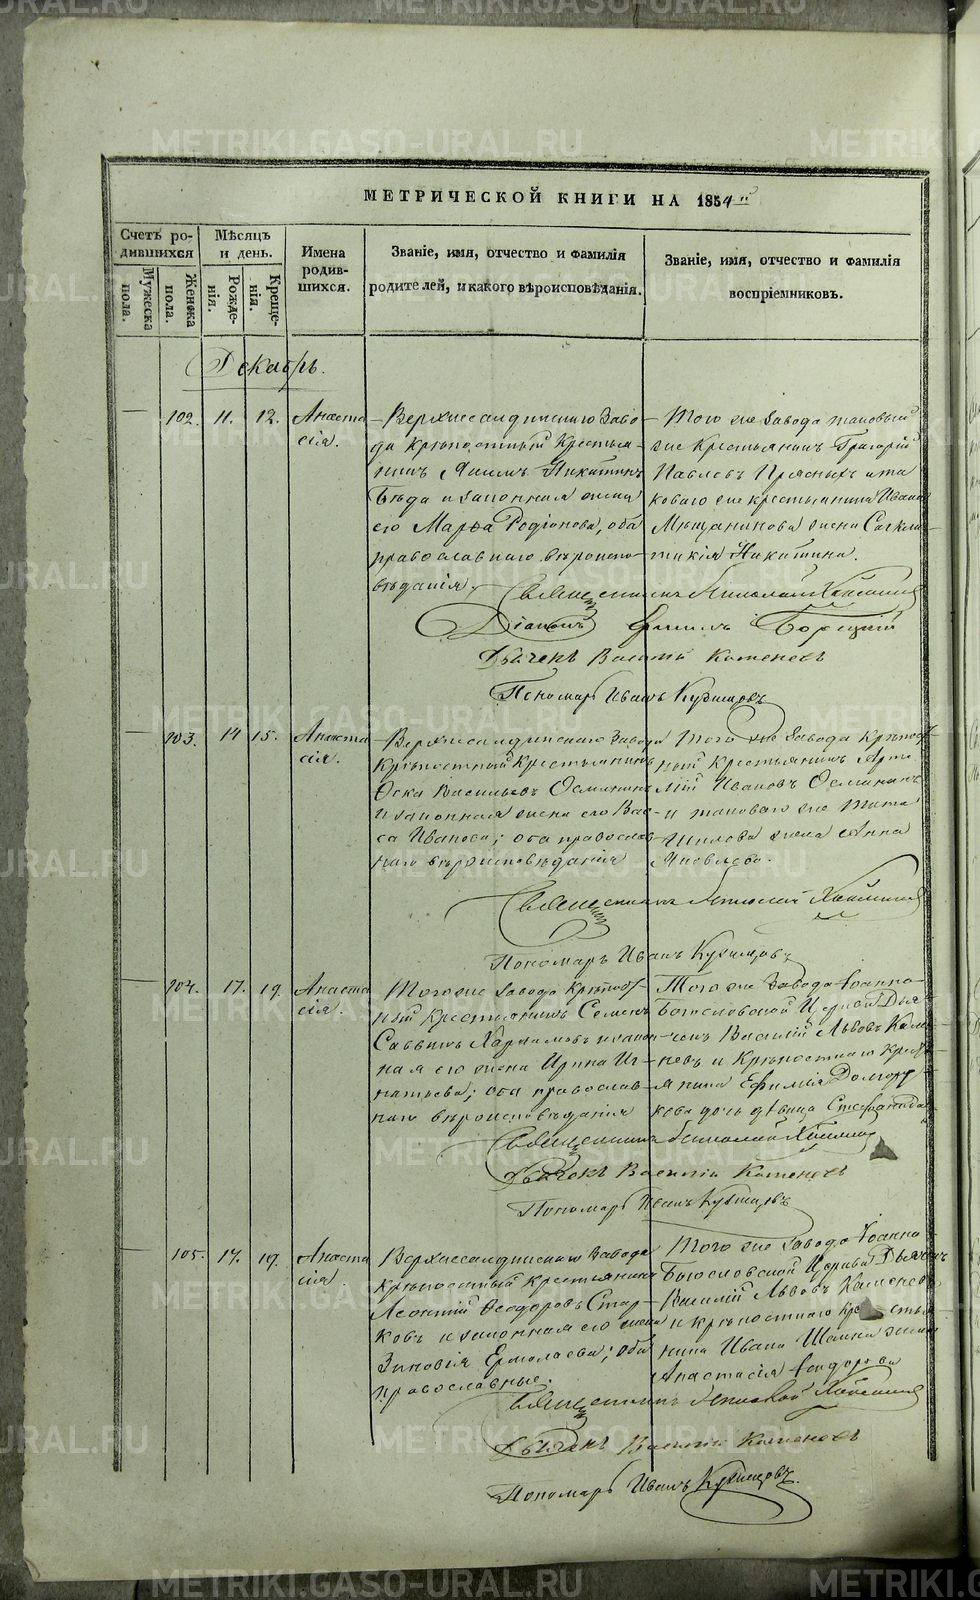 МЕТРИЧЕСКОЙ КНИГИ НА 1854й
Счетъ ро-
дившихся
Мѣсяцъ
и день.
Мужеска
пола.
Женска
пола.
Рожде-
нія.
Креще-
нія.
Имена
родив-
шихся.
Званіе, имя, отчество и фамилія
родителей, и какого вѣроисповѣданія.
Званіе, имя, отчество и фамилія
воспріемниковъ.
Декабрь.
102. 11. 12. Анаста
сія.
Верхнесалдинскаго Заво-
да Крѣпостный Крестья-
нинъ Акимъ Никитинъ
Бѣда и законная жена
его Марѳа Родіонова, оба
православнаго вѣроиспо-
вѣданія.
Того же Завода таковый
же Крестьянинъ Григорій
Павловъ Прясныхъ и та
коваго же крестьянина Ивана
Мѣщанинова жена
Никитина.
Священникъ Николай
Діаконъ
Дьячекъ Василій Каменевъ
Пономарь Иванъ Кубенцовъ
103. 14 15. Анаста
сія.
Верхнесалдинскаго Завода
Крѣпостный Крестьянинъ
Ѳока Васильевъ Осминин
и законная жена его Вас-
са Иванова; оба православ
наго вѣроисповѣданія
Того же Завода Крѣпост
ный Крестьянинъ Арте
мій Ивановъ Осмининъ
и таковаго же Тита
Шилова жена Анна
Яковлева.
Священникъ Николай
Пономарь Иванъ Кубенцовъ
104. 17. 19. Анаста
сія.
Тогоже Завода Крѣпост
ный Крестьянинъ Семенъ
Саввинъ Харламовъ и закон
ная его жена Ирина Иг-
натьева; оба православ-
наго вѣроисповѣданія
Того же Завода Іоанно-
Богословской Церкви Дья
чекъ Василій Львовъ Каме
невъ и Крѣпостнаго Крест
янина Ефимія Долгору
кова дочь дѣвица Стефанида
Священникъ Николай
Дьячекъ Василій Каменевъ
Пономарь Иванъ Кубенцовъ
105. 17. 19. Анаста
сія.
Верхнесалдинскаго Завода
Крѣпостный крестьянинъ
Леонтій Ѳеодоровъ Стар-
ковъ и законная его жена
Зиновія Ермолаева; оба
православные.
Того же Завода Іоанно
Богословской Церкви Дьячекъ
Василій Львовъ Каменевъ
и крѣпостнаго крестья
нина Ивана жена
Анастасія Ѳеодорова
Священникъ Николай
Дьячекъ Василій Каменевъ
Пономарь Иванъ Кубенцовъ.
METRIKI.GASO-URAL.RU